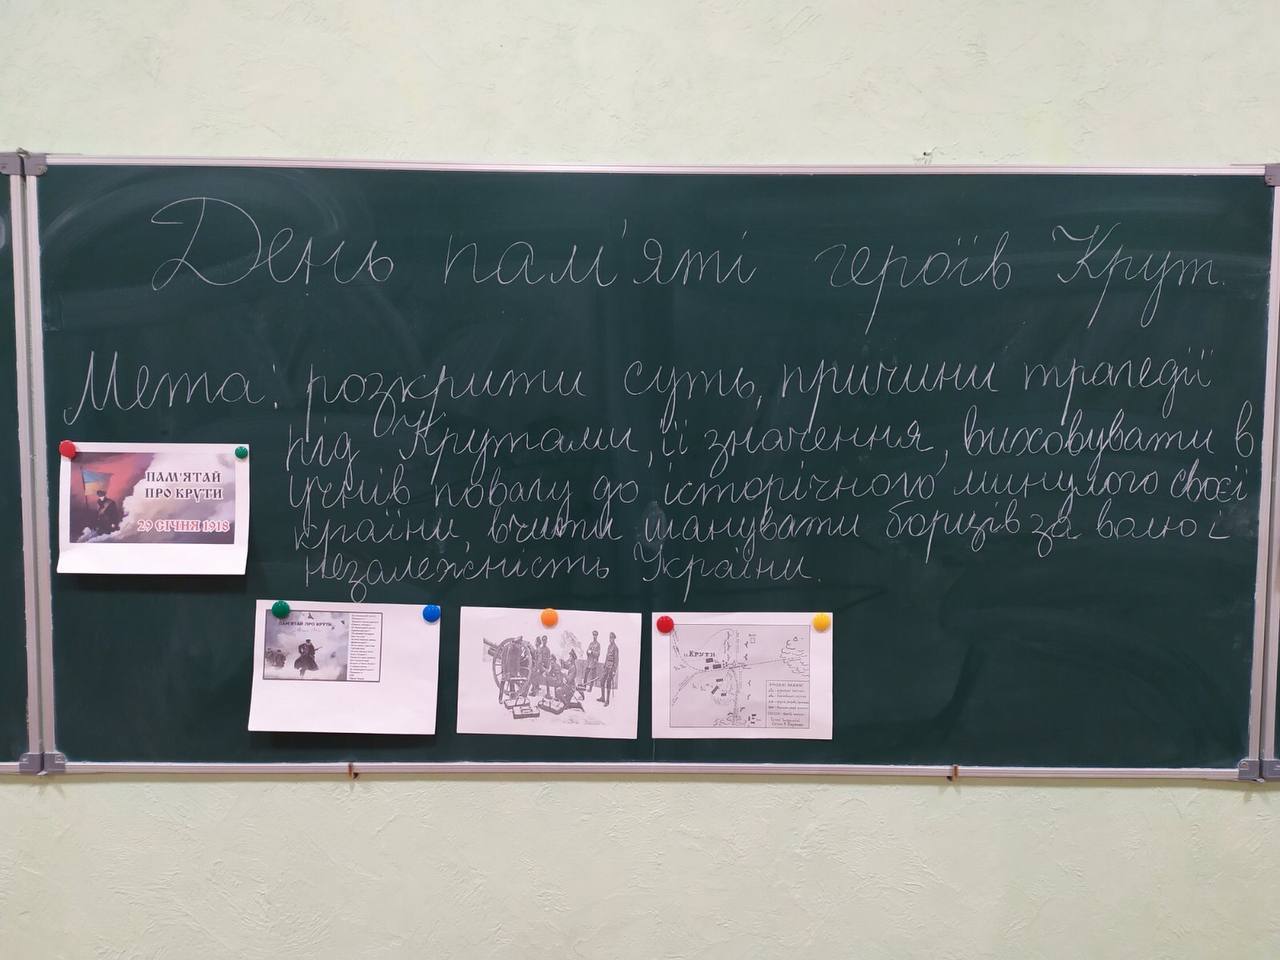 День пам'яті героїв Крут.
Мета: розкрити суть, причини трагедії
під Крутами, її значення, виховувати в
учнів повагу до історічного минулого своєї
країни, вчити шанувати борців за волю і
незалежність України.
ПАМ'ЯТАЙ
ПРО КРУТИ
29 СІЧНЯ 1918
ПАМ'ЯТАЙ ПРО КРУТИ
КРУТИ